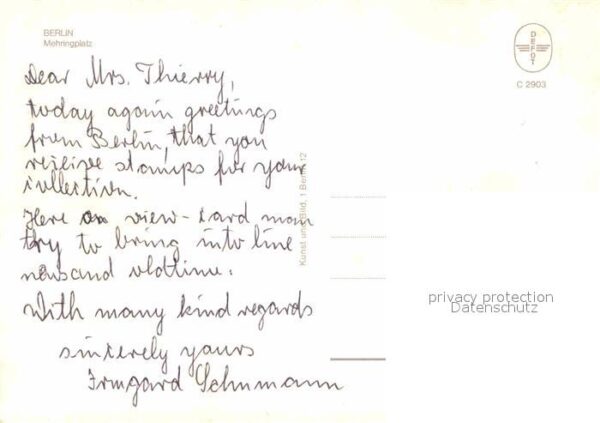 BERLIN
Mehringplatz
DEFOT
C 2903
Dear Mrs. Thierry,
today again greetings
from Berlin, that you
reiceive stamps for your
collection.
Here on view-card man
try to bring into line
new and oldtime.
With many kind regards
sincerely yours
Irmgard Schumann
Kunst und Bild, 1 Berlin 12
privacy protection
Datenschutz